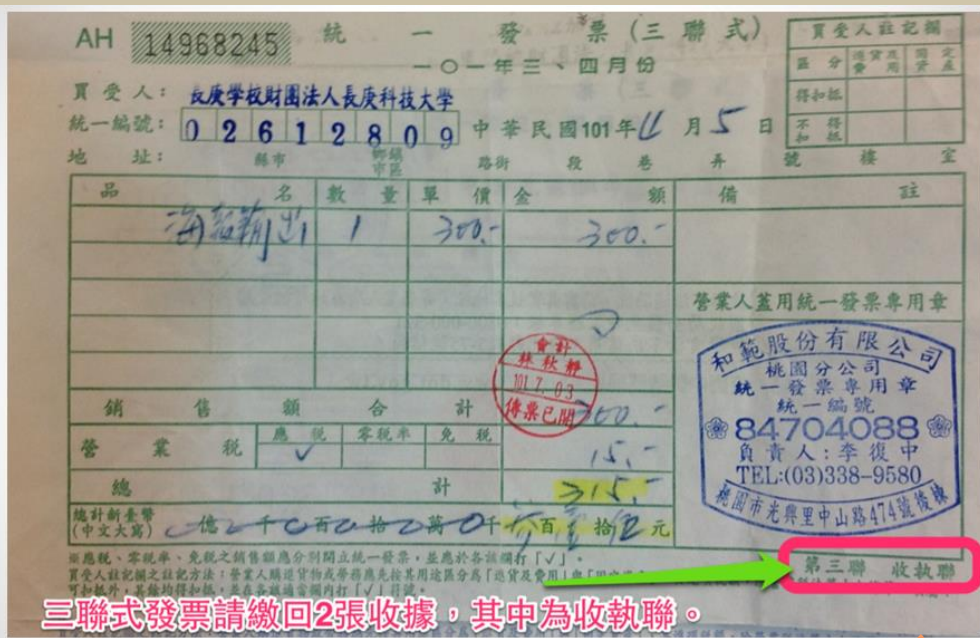 AH 14968245 統一發票(三聯式)
一〇一年三、四月份
買受人註記欄
區分 進貨及費用 固定資產
得扣抵
不得扣抵
買受人: 長庚學校財團法人長庚科技大學
統一編號: 0 2 6 1 2 8 0 9 中華民國101年4月5日
地址: 縣市 鄉鎮市區 路街 段 巷 弄 號 樓 室
品名 數量 單價 金額 備註
海報輸出 1 300.- 300.-
營業人蓋用統一發票專用章
會計
101.7.03
傳票已開
和範股份有限公司
桃園分公司
統一發票專用章
統一編號
84704088
負責人:李復中
TEL:(03)338-9580
桃園市光興里中山路474號後棟
銷售額合計 300.-
應稅 零稅率 免稅
營業稅 ✓ 15.-
總計 315.-
總計新臺幣
(中文大寫) 億 千 百 拾 萬 0千 參百壹拾伍元
※應稅、零稅率、免稅之銷售額應分別開立統一發票,並應於各該欄打「✓」。
買受人註記欄之註記方法:營業人購進貨物或勞務應先按其用途區分為「進貨及費用」與「固定
可扣抵外,其餘均得扣抵,並在各該適當欄內打「✓」符號。
第三聯 收執聯
三聯式發票請繳回2張收據,其中為收執聯。